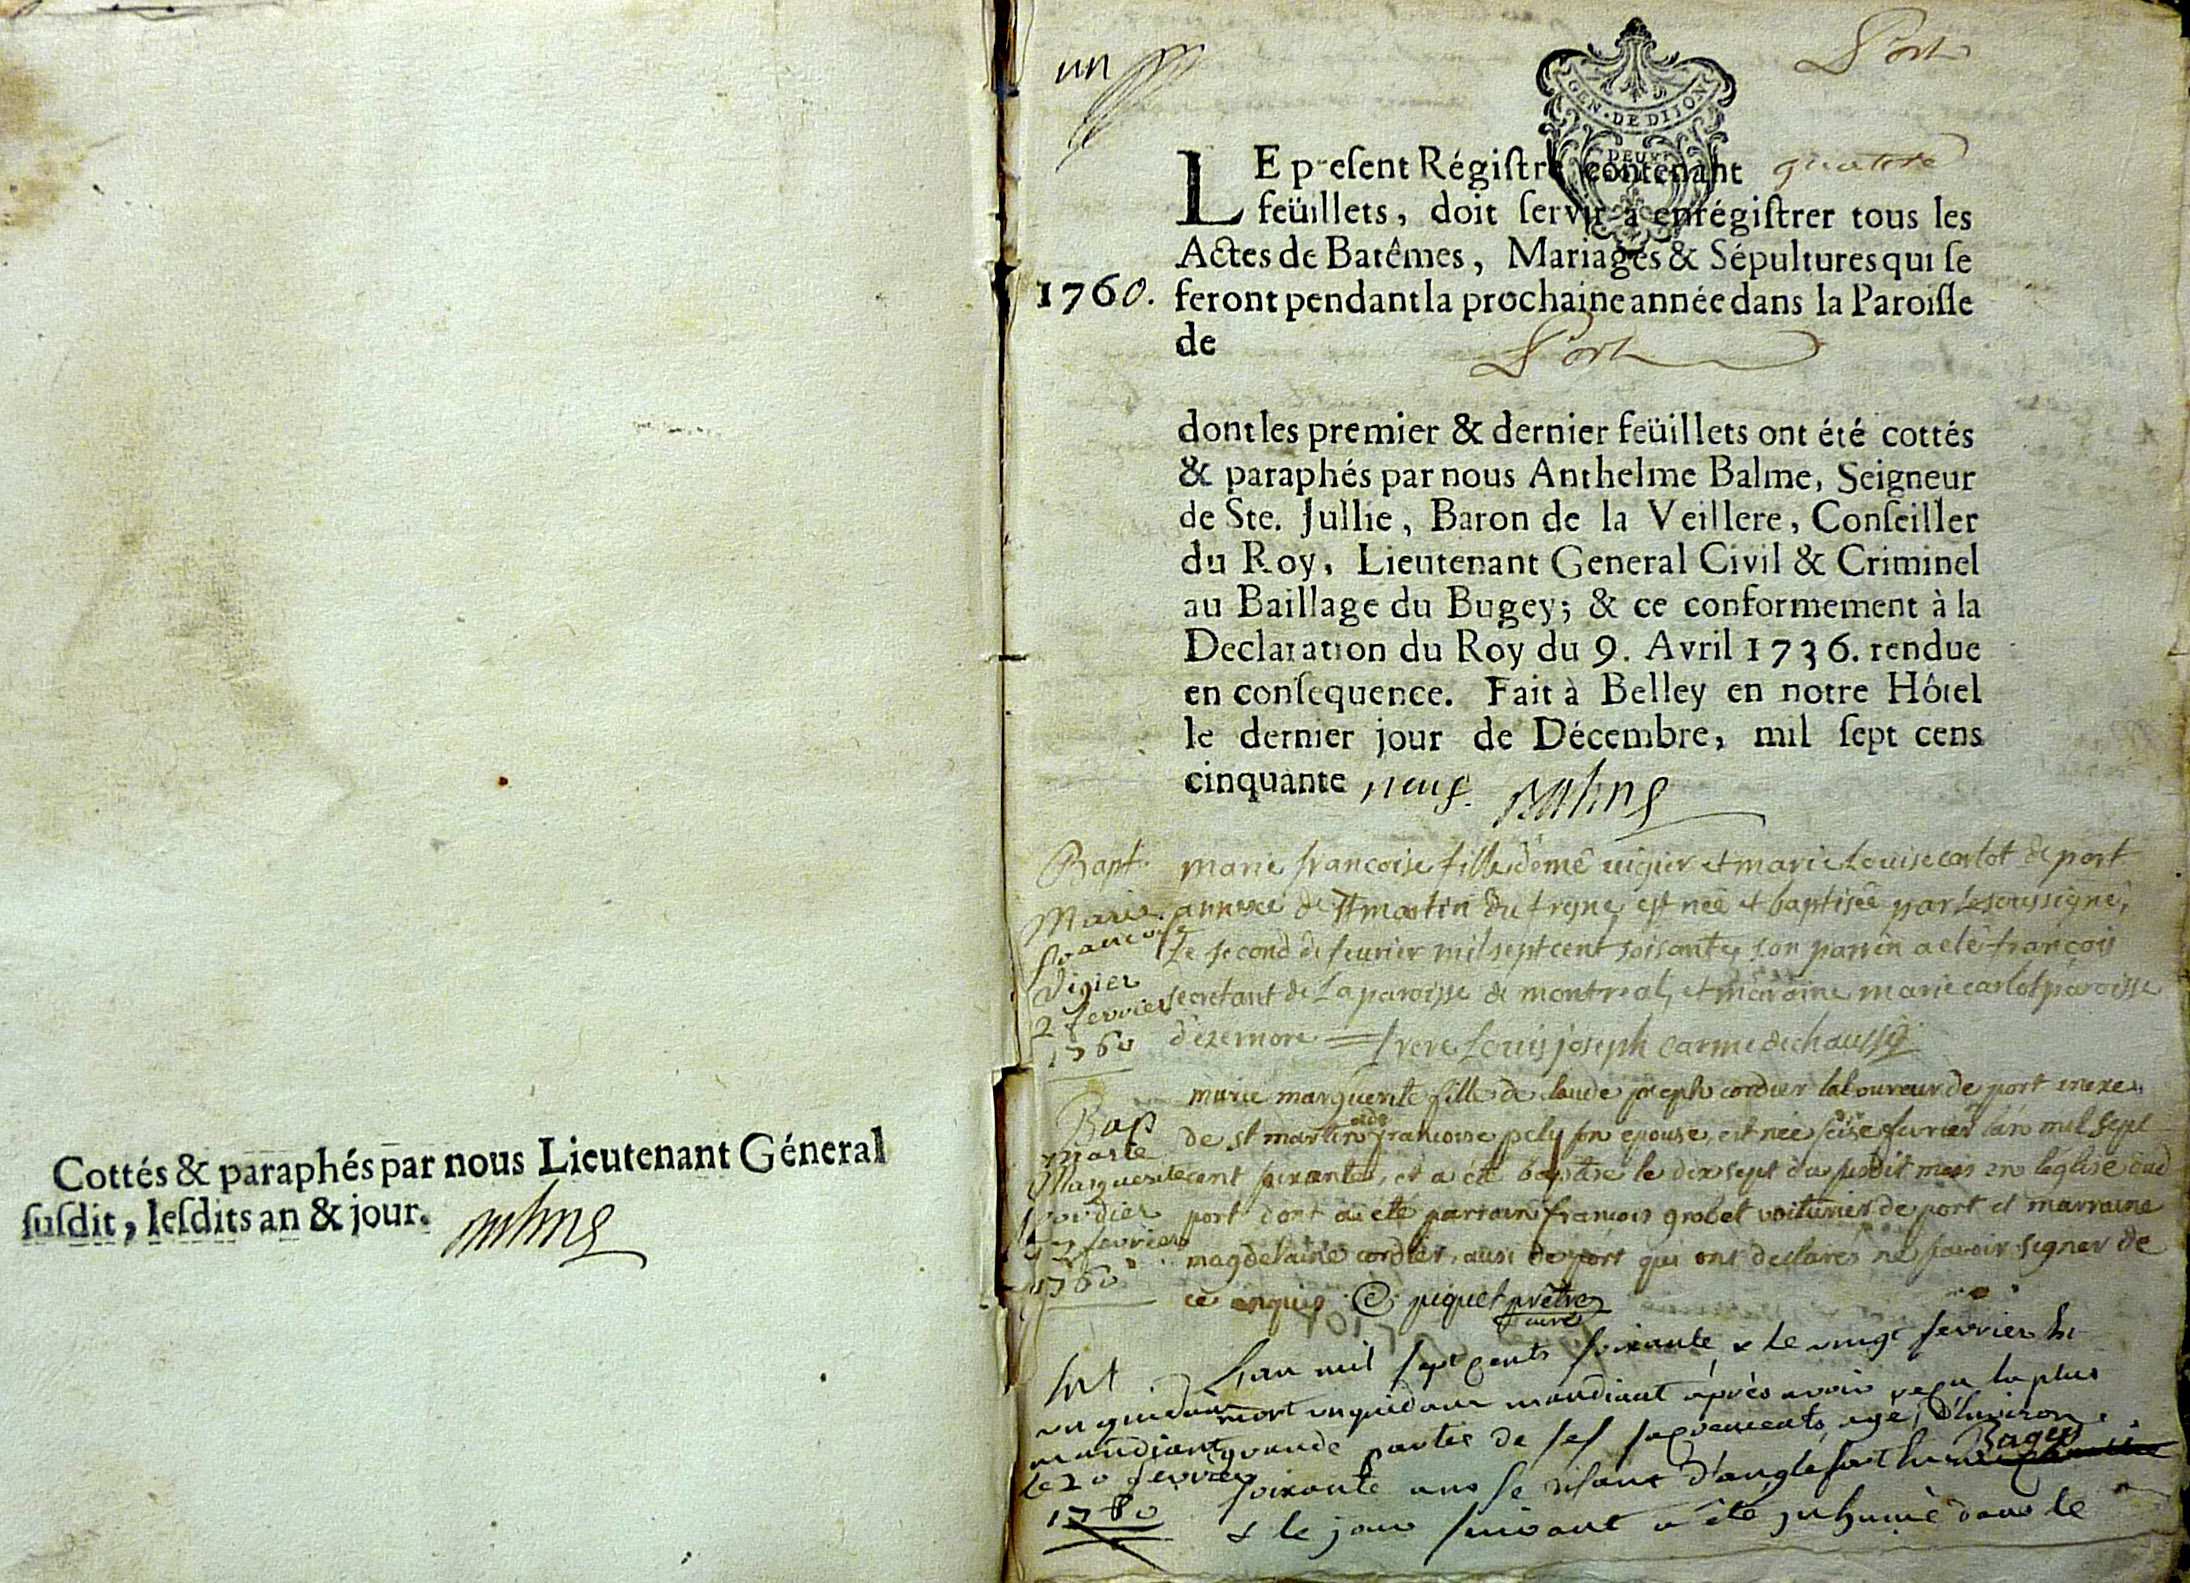 Cottés & paraphés par nous Lieutenant Géneral
ſuſdit, leſdits an & jour.
un
Port
GEN. DE DIJON
DEUX
LE preſent Régiſtre contenant quatre
feüillets, doit ſervir à enrégiſtrer tous les
Actes de Batêmes, Mariages & Sépultures qui ſe
1760. feront pendant la prochaine année dans la Paroiſſe
de Port
dont les premier & dernier feüillets ont été cottés
& paraphés par nous Anthelme Balme, Seigneur
de Ste. Jullie, Baron de la Veillere, Conſeiller
du Roy, Lieutenant General Civil & Criminel
au Baillage du Bugey; & ce conformement à la
Declaration du Roy du 9. Avril 1736. rendue
en conſequence. Fait à Belley en notre Hôtel
le dernier jour de Décembre, mil ſept cens
cinquante neuf. Balme
Bapt.
Marie
francoise
Vigier
2 fevrier
1760
marie francoise fille d'emé vigier et marie Louise carlot de port
annexe de st martin du fresne, est née et baptisée par le soussigné,
Le second de feurier mil sept cent soisante, son parrin a eté françois
secretant de La paroisse de montreal, et maraine marie carlot paroisse
d'ezernore = frere Louis joseph Carme dechaussé
Bap
marie
Marguerite
Cordier
17 fevrier
1760
marie marguerite fille de claude joseph cordier laboureur de port anexe
de st martin et de francoise pely son epouse, est née seise fevrier l'an mil sept
cent soixante, et a été baptisé le dix sept du susdit mois en l'église dud
port dont a été parrain francois grobet voiturier de port et marraine
magdelaine cordier, aussi de port qui ont declarés ne savoir signer de
ce enquis piquet prêtre
curé
un quidam
mandiant
le 20 fevrier
1760
L'an mil sept cents soixante & le vingt fevrier
mort un quidam mandiant après avoir reçu la plus
grande partie de ses sacrements, agé, d'environ
soixante ans se disant d'anglefort Bugey
& le jour suivant a été inhumé dans le